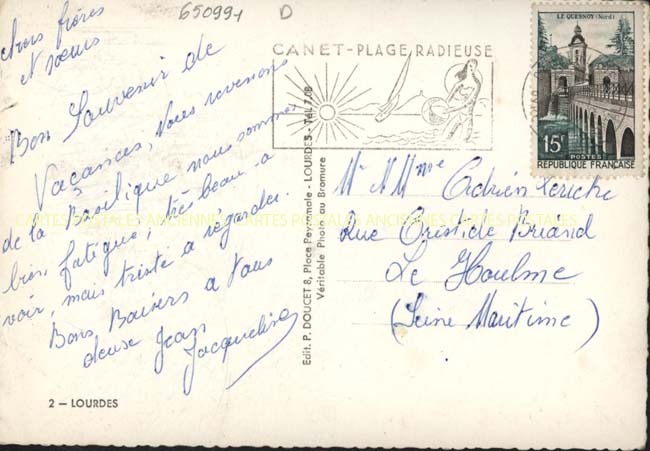 650991 D
chers frères
et sœurs
Bon Souvenir de
Vacances, Nous revenons
de la Basilique nous sommes
bien fatigué, très beau a
voir, mais triste a regarder.
Bons Baisers a tous
deux Jean
Jacqueline
2 — LOURDES
Edit. P. DOUCET 8, Place Peyramale - LOURDES - Tél. 7.08
Véritable Photo au Bromure
CANET-PLAGE, RADIEUSE
LE QUESNOY (Nord)
15F
POSTES
REPUBLIQUE FRANÇAISE
Mr & Mme Adrien
Rue Aristide Briand
Le Houlme
(Seine Maritime)
CARTES POSTALES ANCIENNES CARTES POSTALES ANCIENNES CARTES POSTALES